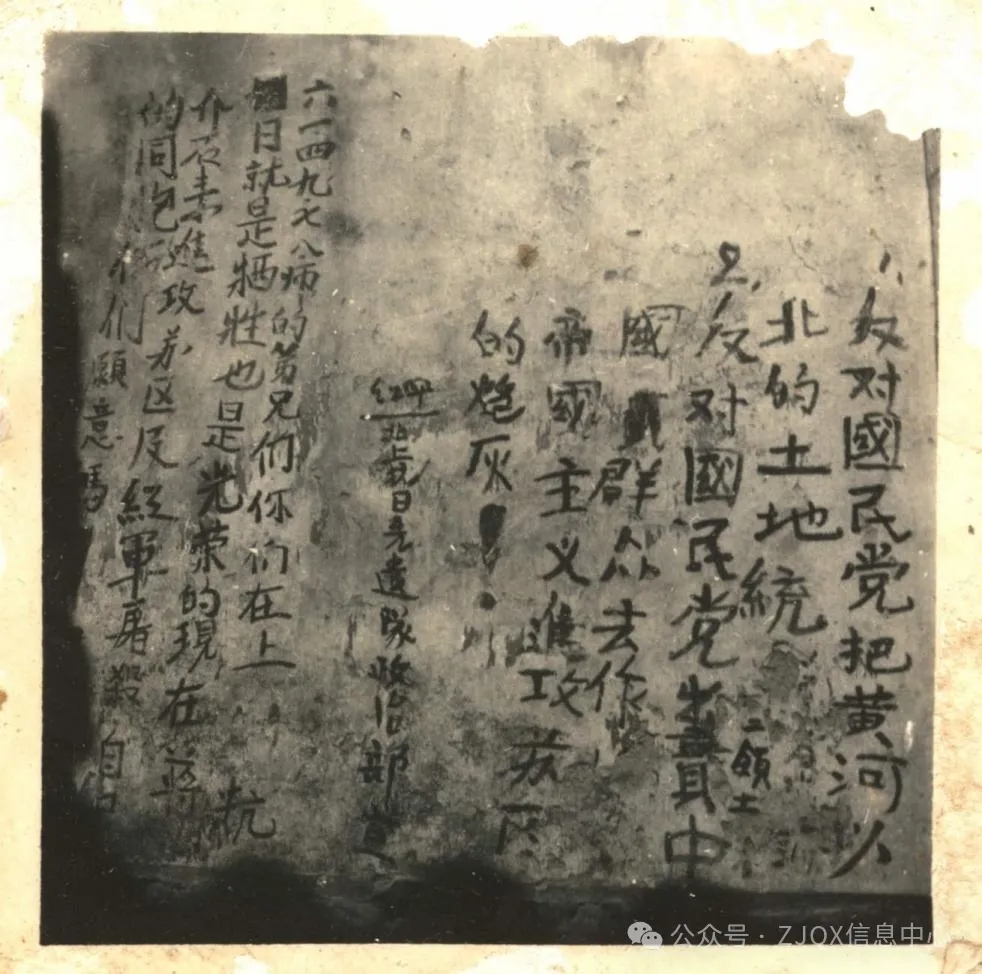 1、反对國民党把黄河以
北的土地統
二領土
2、反对國民党出賣中
國 群众去作
帝國主义進攻苏区
的炮灰！
紅軍北上抗日先遣隊政治部宣
六一四九七八师的弟兄们你们在上 抗
日就是牺牲也是光荣的現在蒋
介石 進攻苏区及紅軍屠殺自
的同包 们願意嗎
公众号·ZJOX信息中心